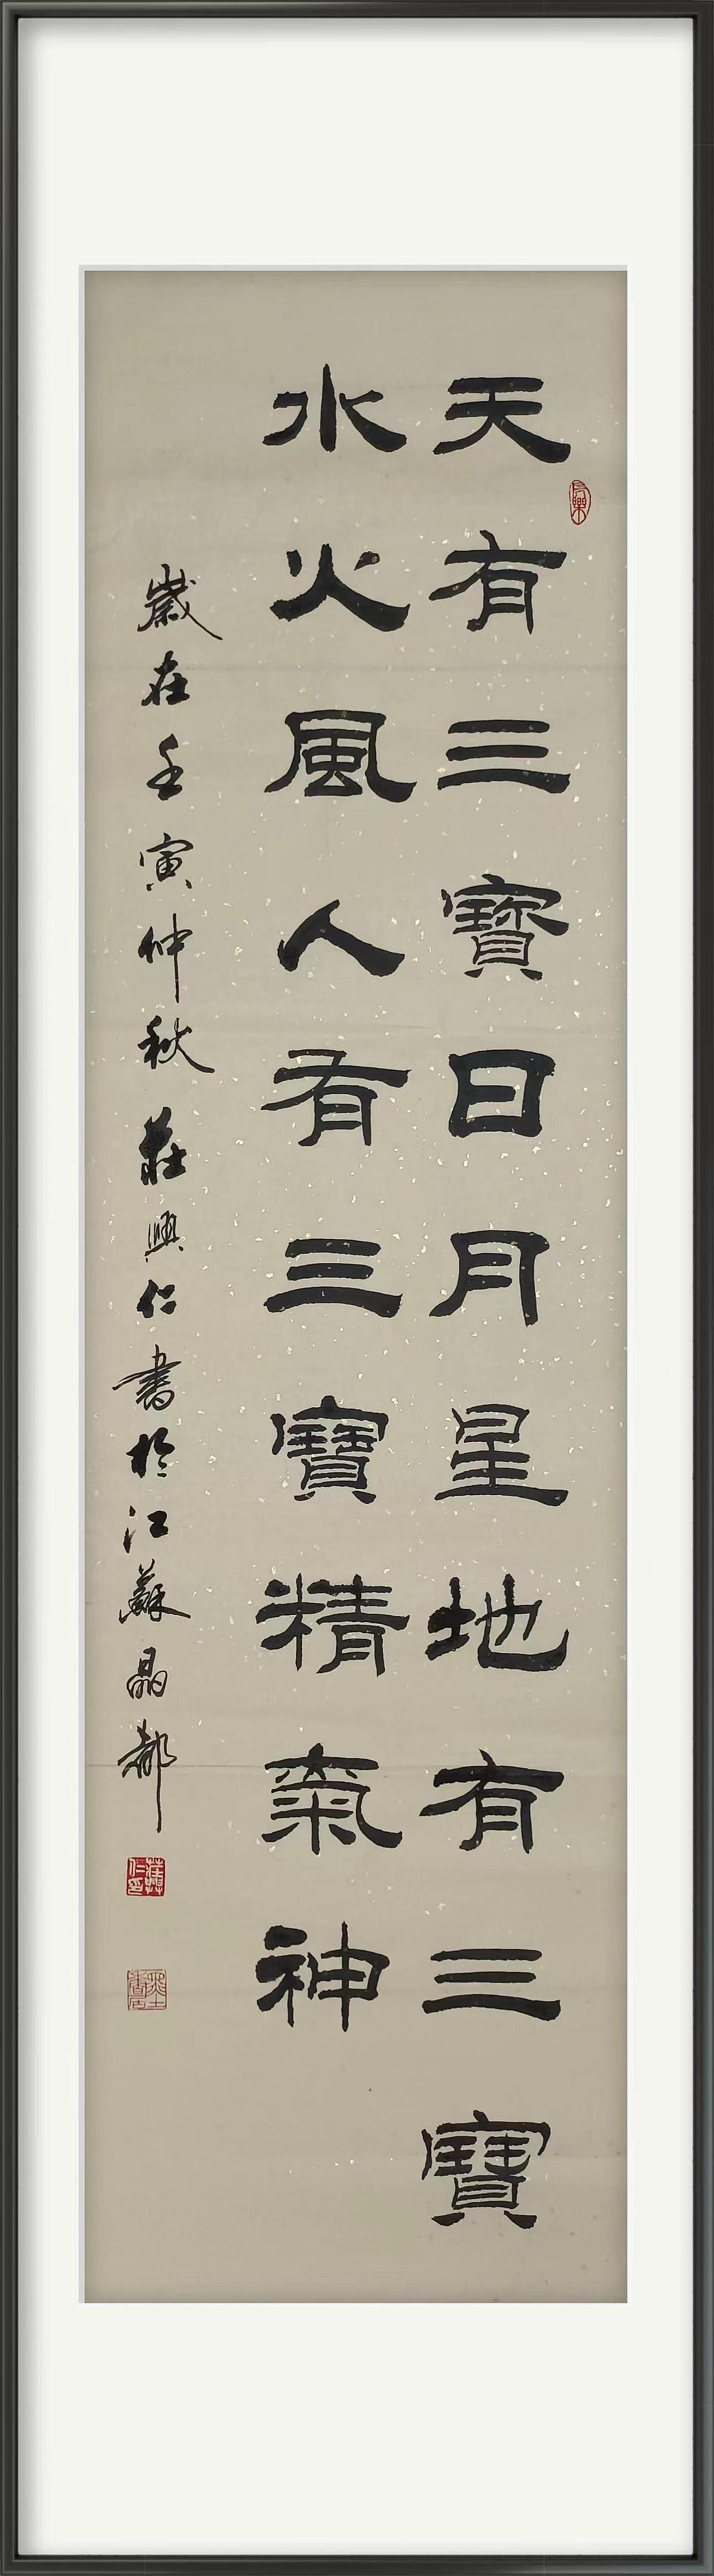 天有三寶日月星地有三寶
水火風人有三寶精氣神
歲在壬寅仲秋莊興仁書於江蘇晶都
長樂